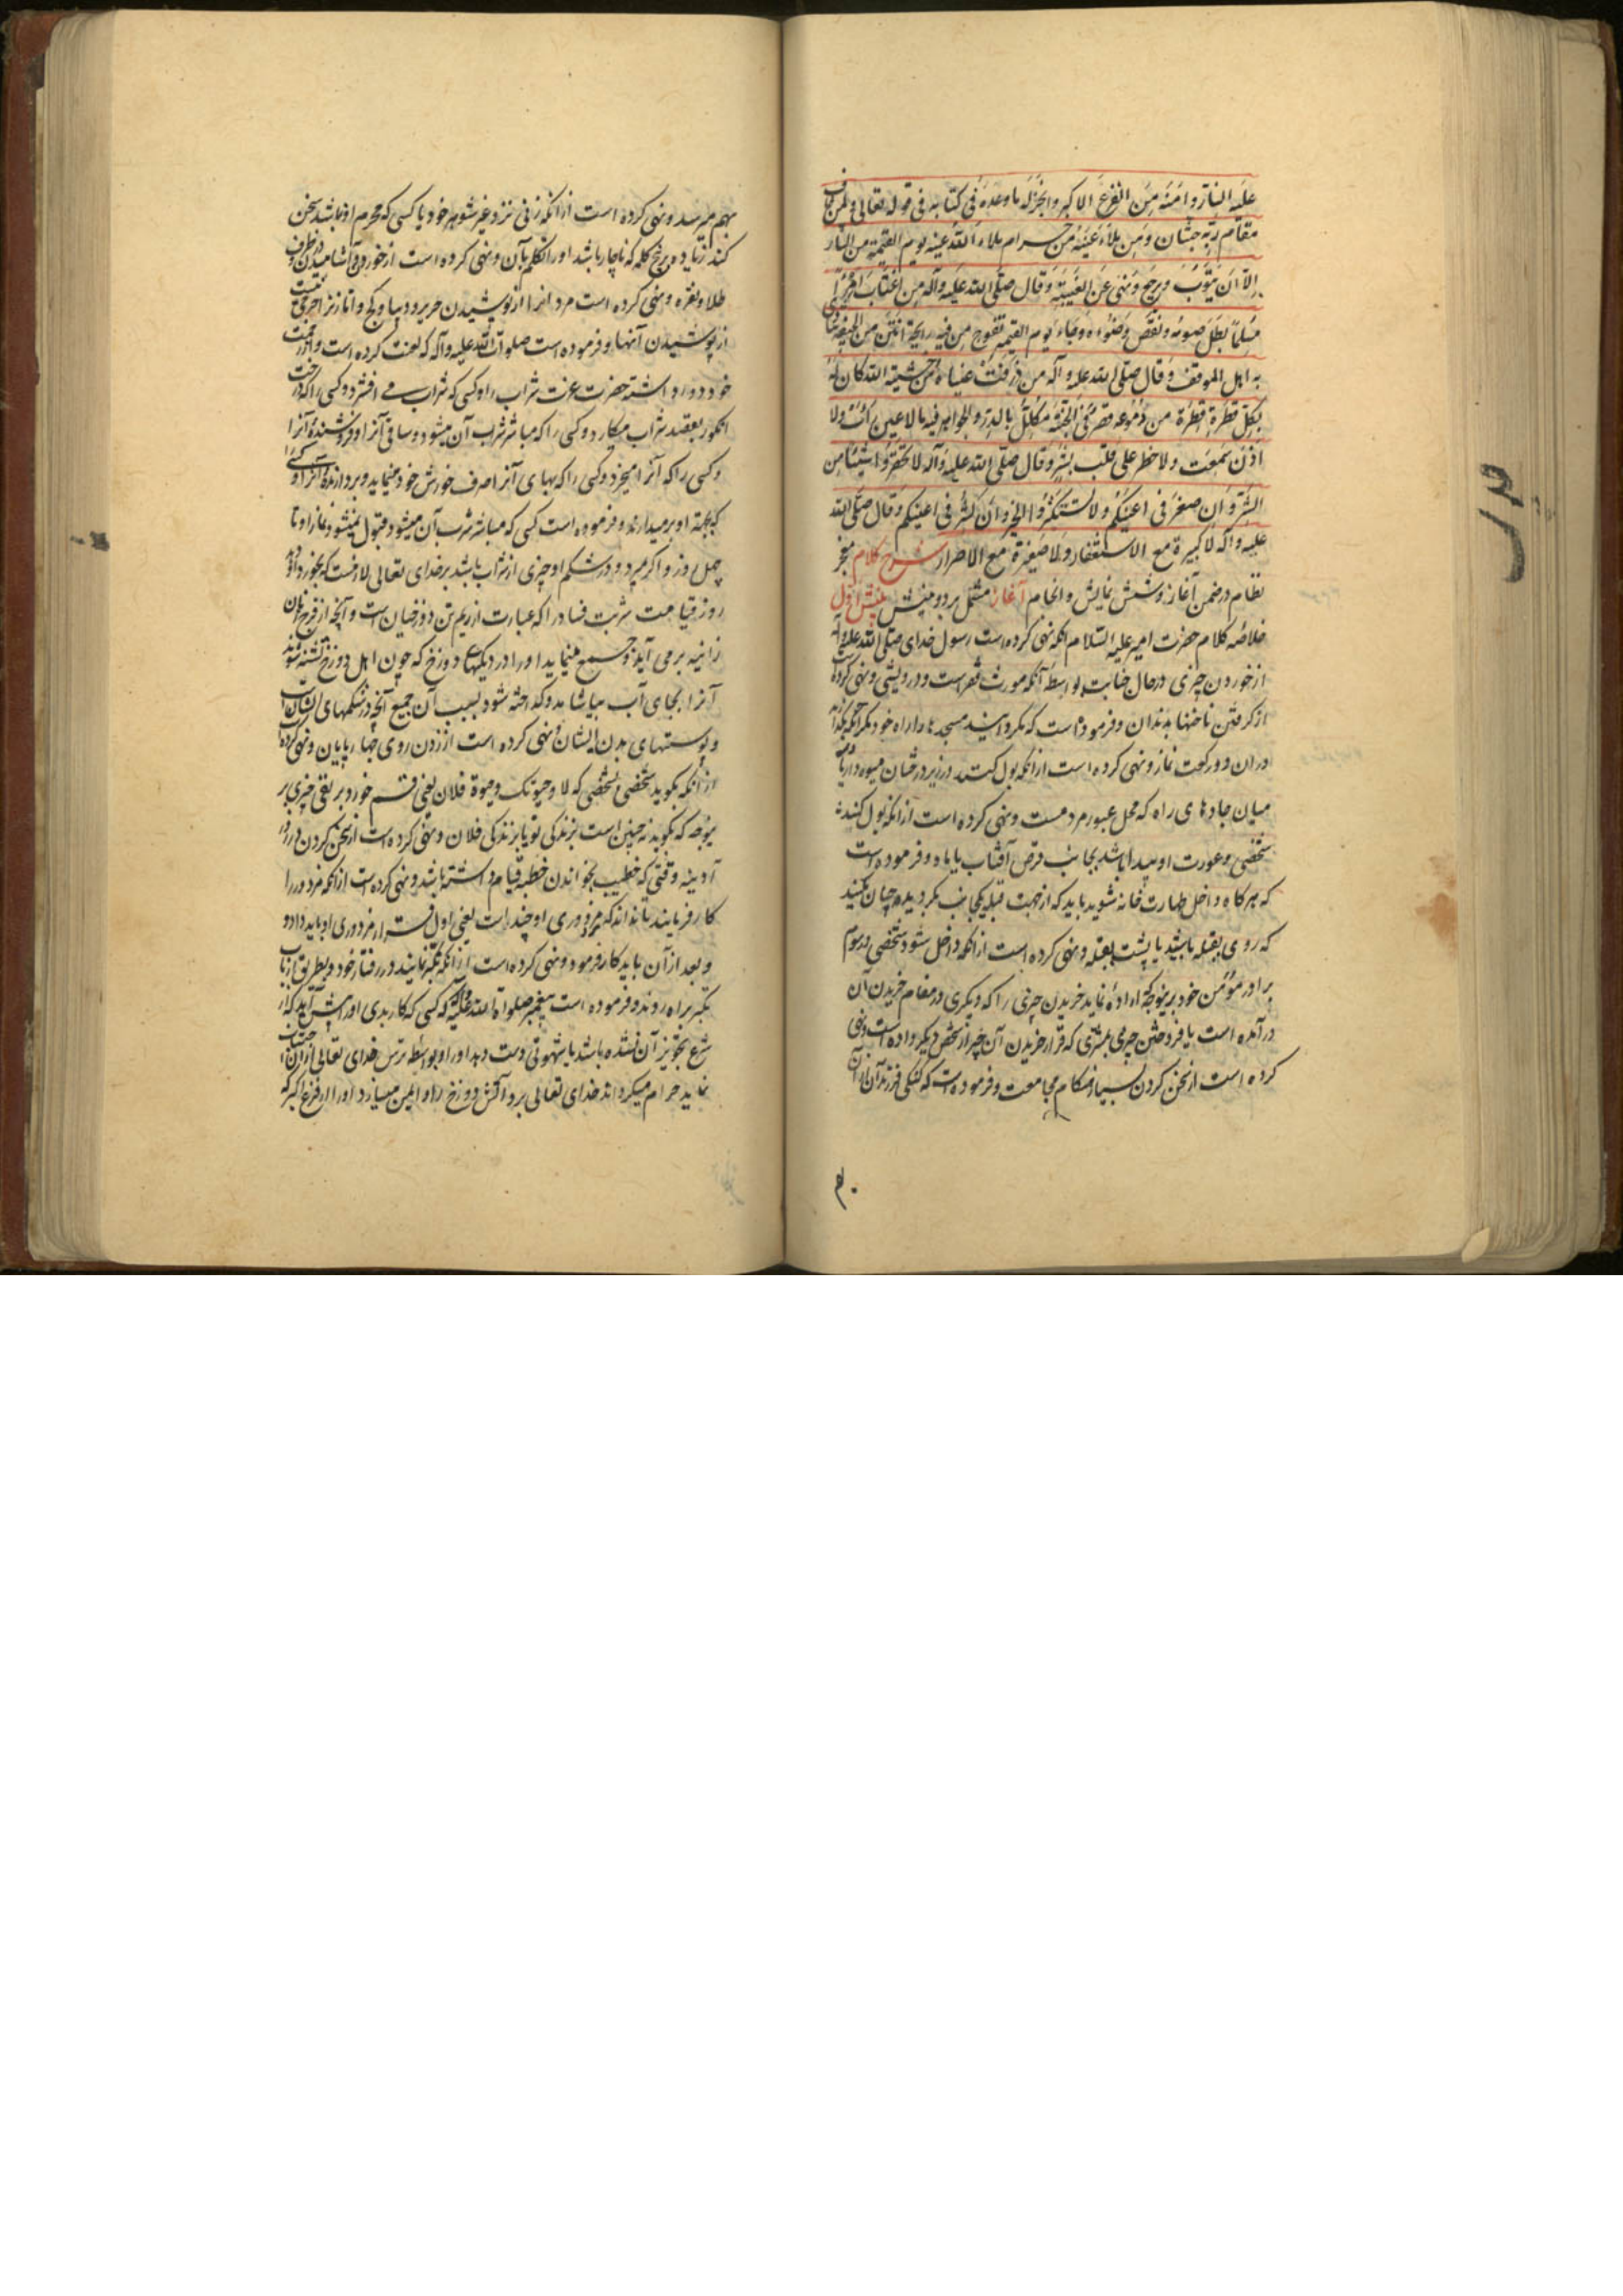 علیه النار و امنه من الفزع الاکبر و انجز له ما وعده فی کتابه فی قوله تعالی و لمن خاف
مقام ربه جنتان و من ملأ عینه من حرام ملاء الله عینه یوم القیمة من النار
الا ان یتوب و یرجع و نهی عن الغیبة و قال صلی الله علیه و آله من اغتاب امرءا
مسلما بطل صومه و نقض وضوءه و جاء یوم القیمة تفوح من فیه رایحة انتن من الجیفة یتاذی
به اهل الموقف و قال صلی الله علیه و آله من ذرفت عیناه من خشیة الله کان له
بکل قطرة قطرة من دموعه قصر فی الجنة مکلل بالدر و الجواهر فیه ما لا عین رأت و لا
اذن سمعت و لا خطر علی قلب بشر و قال صلی الله علیه و آله لا تحقروا شیئا من
الشر و ان صغر فی اعینکم و لا تستکثروا الخیر و ان کثر فی اعینکم و قال صلی الله
علیه و آله لا کبیرة مع الاستغفار و لا صغیرة مع الاصرار شرح کلام معجز
نظام در ضمن آغاز و شش نمایش و انجام آغاز مشتمل بر دو بینش بینش اول
خلاصه کلام حضرت امیر علیه السلام آنکه نهی کرده است رسول خدای صلی الله علیه و آله
از خوردن چیزی در حال جنابت بواسطه آنکه مورث فقر است و درویشی و نهی کرده است
از گرفتن ناخنها بدندان و فرموده است که مگردانید مسجدها را راه خود مگر آنکه بگذارید
در ان دو رکعت نماز و نهی کرده است از انکه بول کنند در زیر درختان میوه دار یا
میان جادهای راه که محل عبور مردمست و نهی کرده است از انکه بول کند
شخصی و عورت او پیدا باشد بجانب قرص آفتاب یا ماه و فرموده است
که هر گاه داخل طهارت خانه شوید باید که از جهت قبله بیکجانب بگردید و چنان مکنید
که روی بقبله باشید یا پشت بقبله و نهی کرده است از انکه داخل شود شخصی در سوم
برادر مؤمن خود برینوجه که اراده نماید خریدن چیزی را که دیگری در مقام خریدن آن
در آمده است یا فروختن چیزی بمشتری که قرار خریدن آن چیز از شخص دیگر داده است و نهی
کرده است از سخن کردن بسیار هنگام مجامعت و فرموده است که گنگی فرزند آن از آن
بهم میرسد و نهی کرده است از انکه زنی نزد غیر شوهر خود یا کسی که محرم او نباشد سخن
کند زیاده بر پنج کلمه که ناچار باشد او را تکلم بآن و نهی کرده است از خوردن و آشامیدن در ظرف
طلا و نقره و نهی کرده است مردانرا از پوشیدن حریر و دیبا و کج و اما زنانرا حرجی نیست
از پوشیدن آنها و فرموده است صلوات الله علیه و آله که لعنت کرده است و از رحمت
خود دور داشته حضرت عزت شراب را و کسی که شراب می افشرد و کسی را که درخت
انگور بقصد شراب میکارد و کسی را که مباشر شراب آن میشود و ساقی آنرا و فروشنده آنرا
و کسی را که آنرا میخرد و کسی را که بهای آنرا صرف خورش خود مینماید و بردارنده آنرا و کسی
که بجهة او بر میدارند و فرموده است کسی که مباشر شرب آن میشود قبول نمیشود نماز او تا
چهل روز و اگر میرد و در شکم او چیزی از شراب باشد بر خدای تعالی لازمست که بخورد او دهد
روز قیامت شربت فساد را که عبارت از ریم تن دوزخیان است و آنچه از فرج زنان
زانیه بر می آید و جمع مینماید او را در دیکهای دوزخ که چون اهل دوزخ تشنه شوند
آنرا بجای آب بیاشامند و گداخته شود بسبب آن جمیع آنچه در شکمهای ایشان است
و پوستهای بدن ایشان و نهی کرده است از زدن روی چهار پایان و نهی کرده
از انکه بگوید شخصی بشخصی که لا و حیوتک و حیوة فلان یعنی قسم خورد بر نفی چیزی بر
یوجه که بگوید نه چنین است بزندگی تو یا بزندگی فلان و نهی کرده است از سخن کردن در روز
آدینه وقتی که خطیب بخواندن خطبه قیام داشته باشد و نهی کرده است از انکه مزدور را
کار فرمایند تا ندانند که مزدوری او چند است یعنی اول قرار مزدوری او باید داد و
و بعد از آن باید کار فرمود و نهی کرده است از انکه تکبر نمایند در رفتار خود و بطریق ارباب
تکبر براه روند و فرموده است پیغمبر صلواة الله علیه و آله که کسی که کار بدی او را پیش آید که از
شرع تجویز آن نشده باشد یا شهوتی دست دهد او را و او بواسطه ترس خدای تعالی از ان اجتناب
نماید حرام میگرداند خدای تعالی برو آتش دوزخ را و ایمن میسازد او را از فزع اکبر که